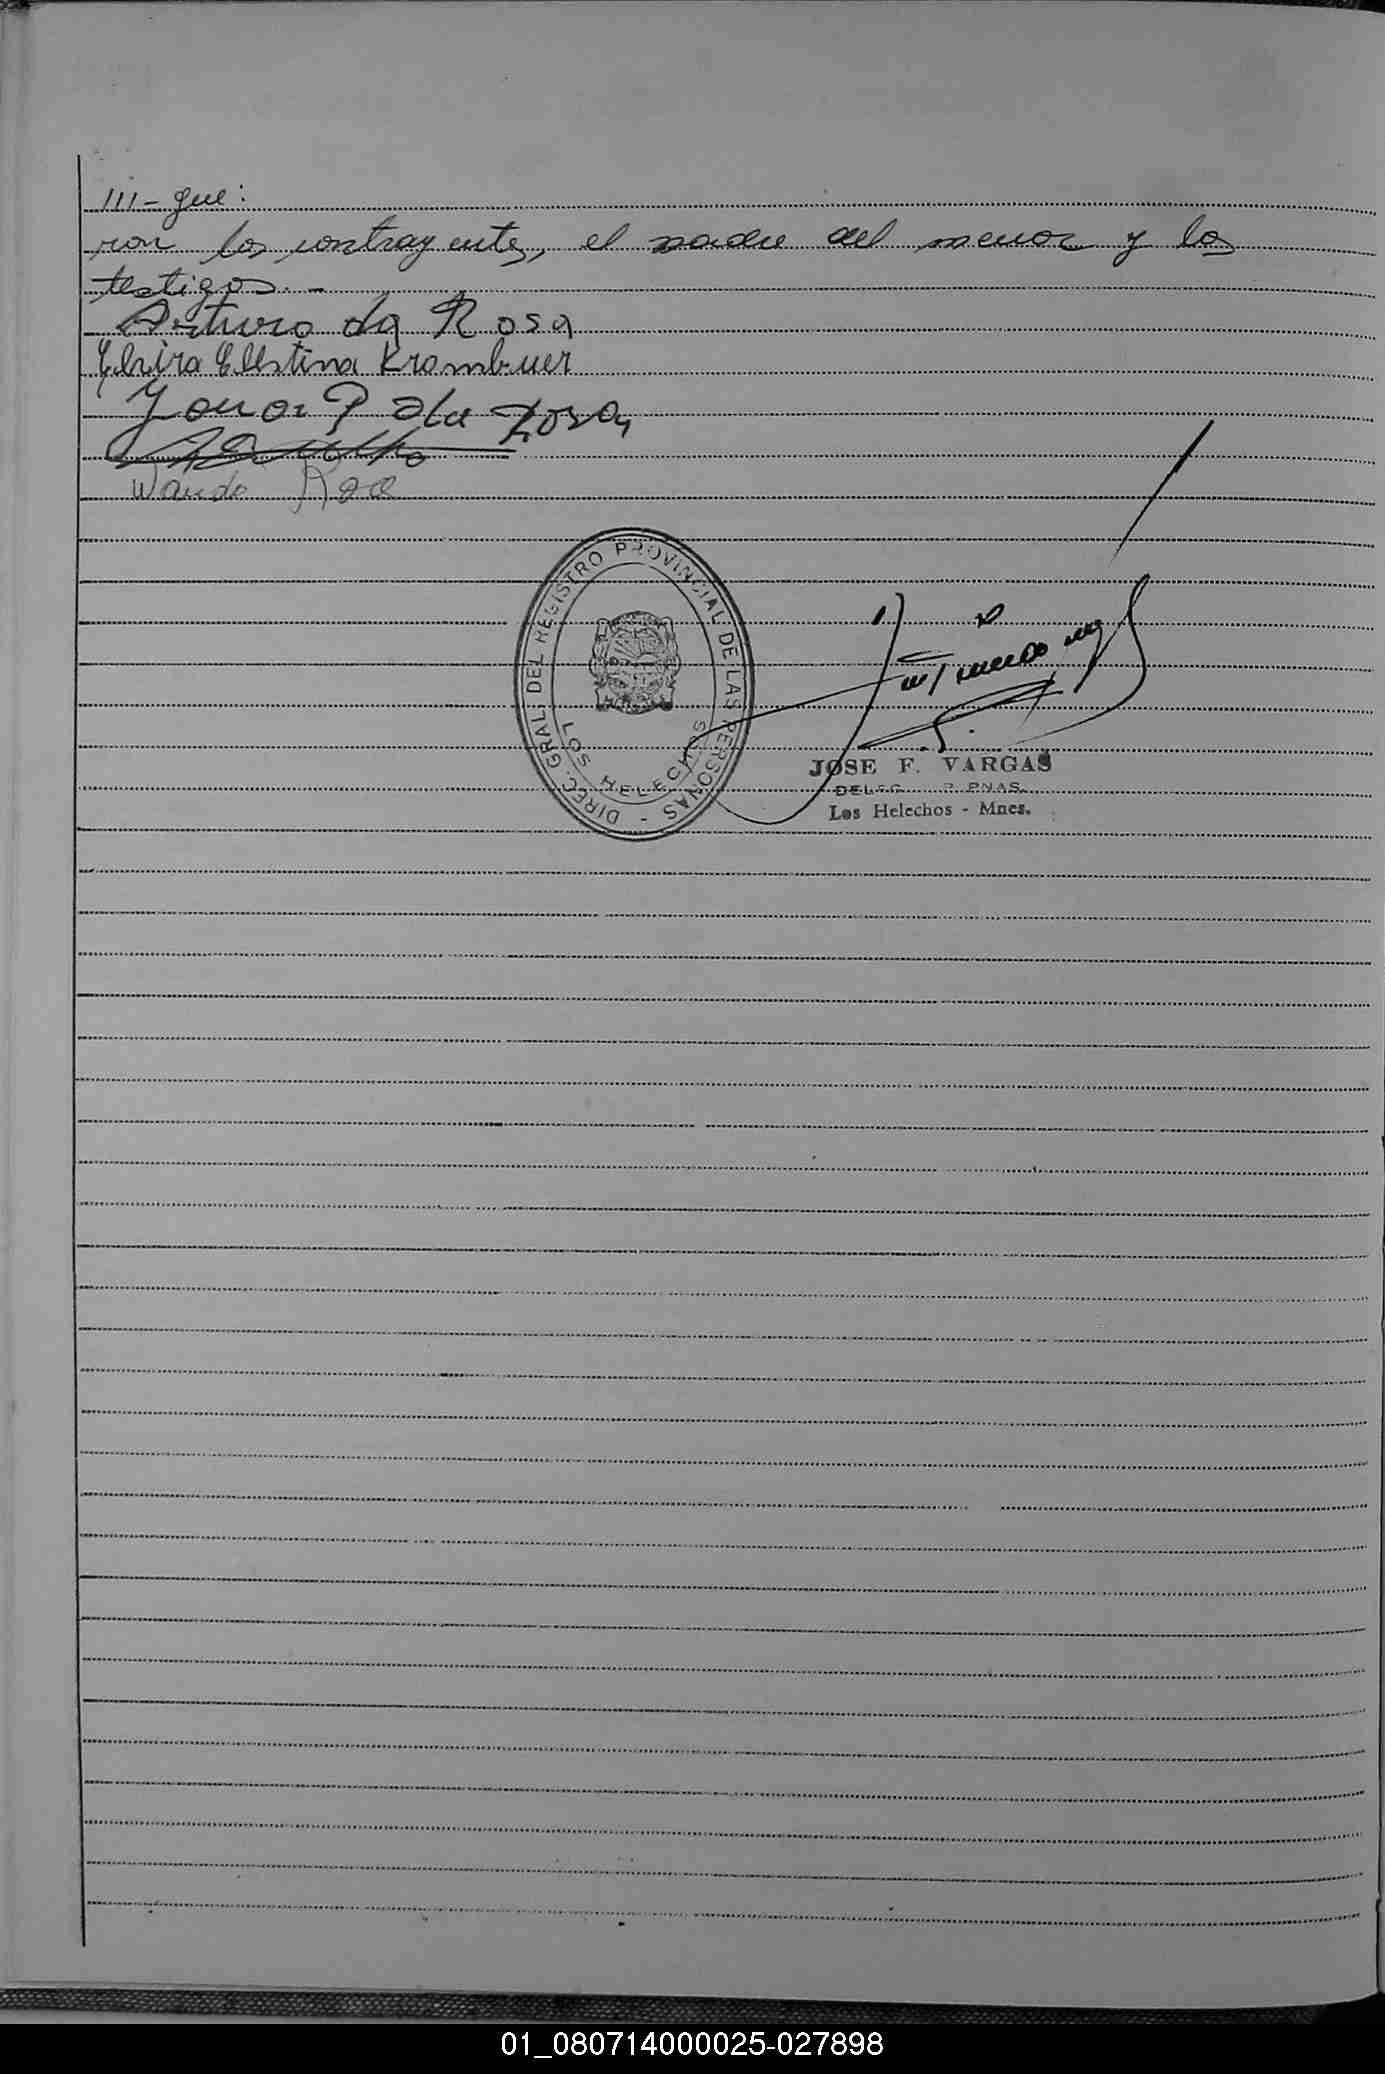 III - que:
ron los contrayentes, el padre del menor y los
testigos. -
Arturo da Rosa
Elvira Celestina Krombauer
P da Rosa
Wando
DIREC. GRAL. DEL REGISTRO PROVINCIAL DE LAS PERSONAS -
LOS HELECHOS
JOSE F. VARGAS
Los Helechos - Mnes.
01_080714000025-027898